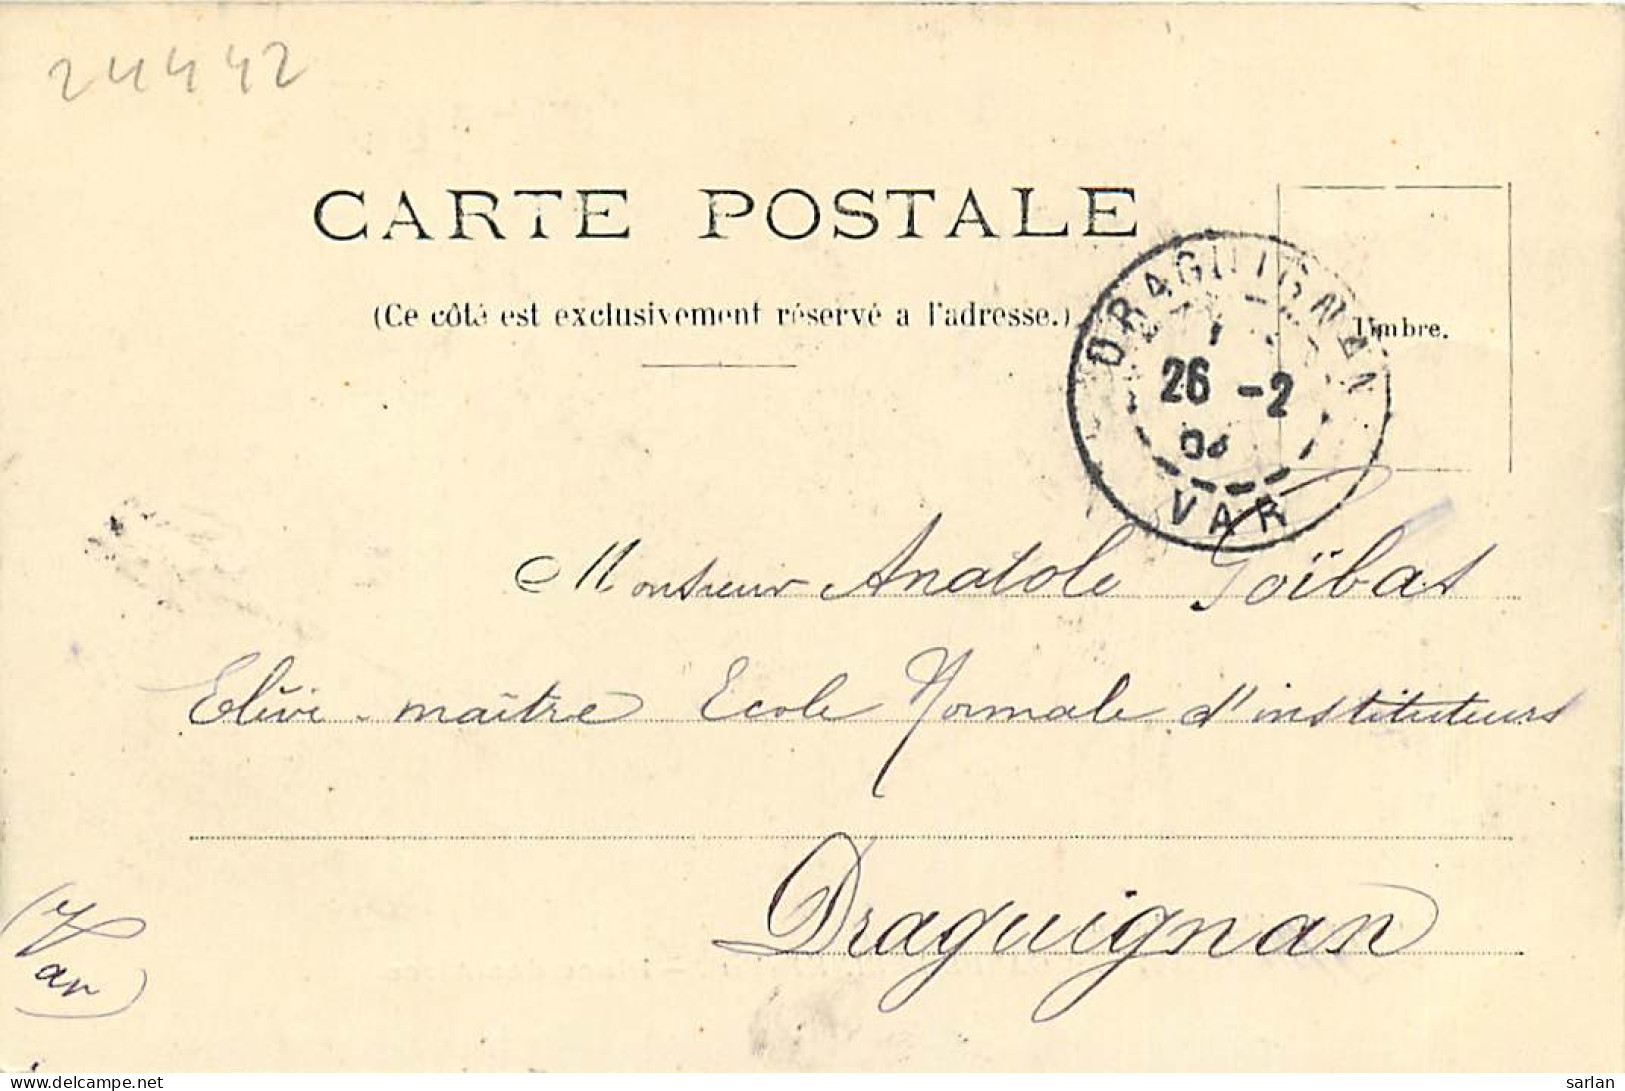 24442
CARTE POSTALE
(Ce côté est exclusivement réservé a l'adresse.)
Timbre.
DRAGUIGNAN
1
26 -2
VAR
Monsieur Anatole Goïbat
Elève-maître Ecole Normale d'instituteurs
Draguignan
(Var)
www.delcampe.net
sarlan